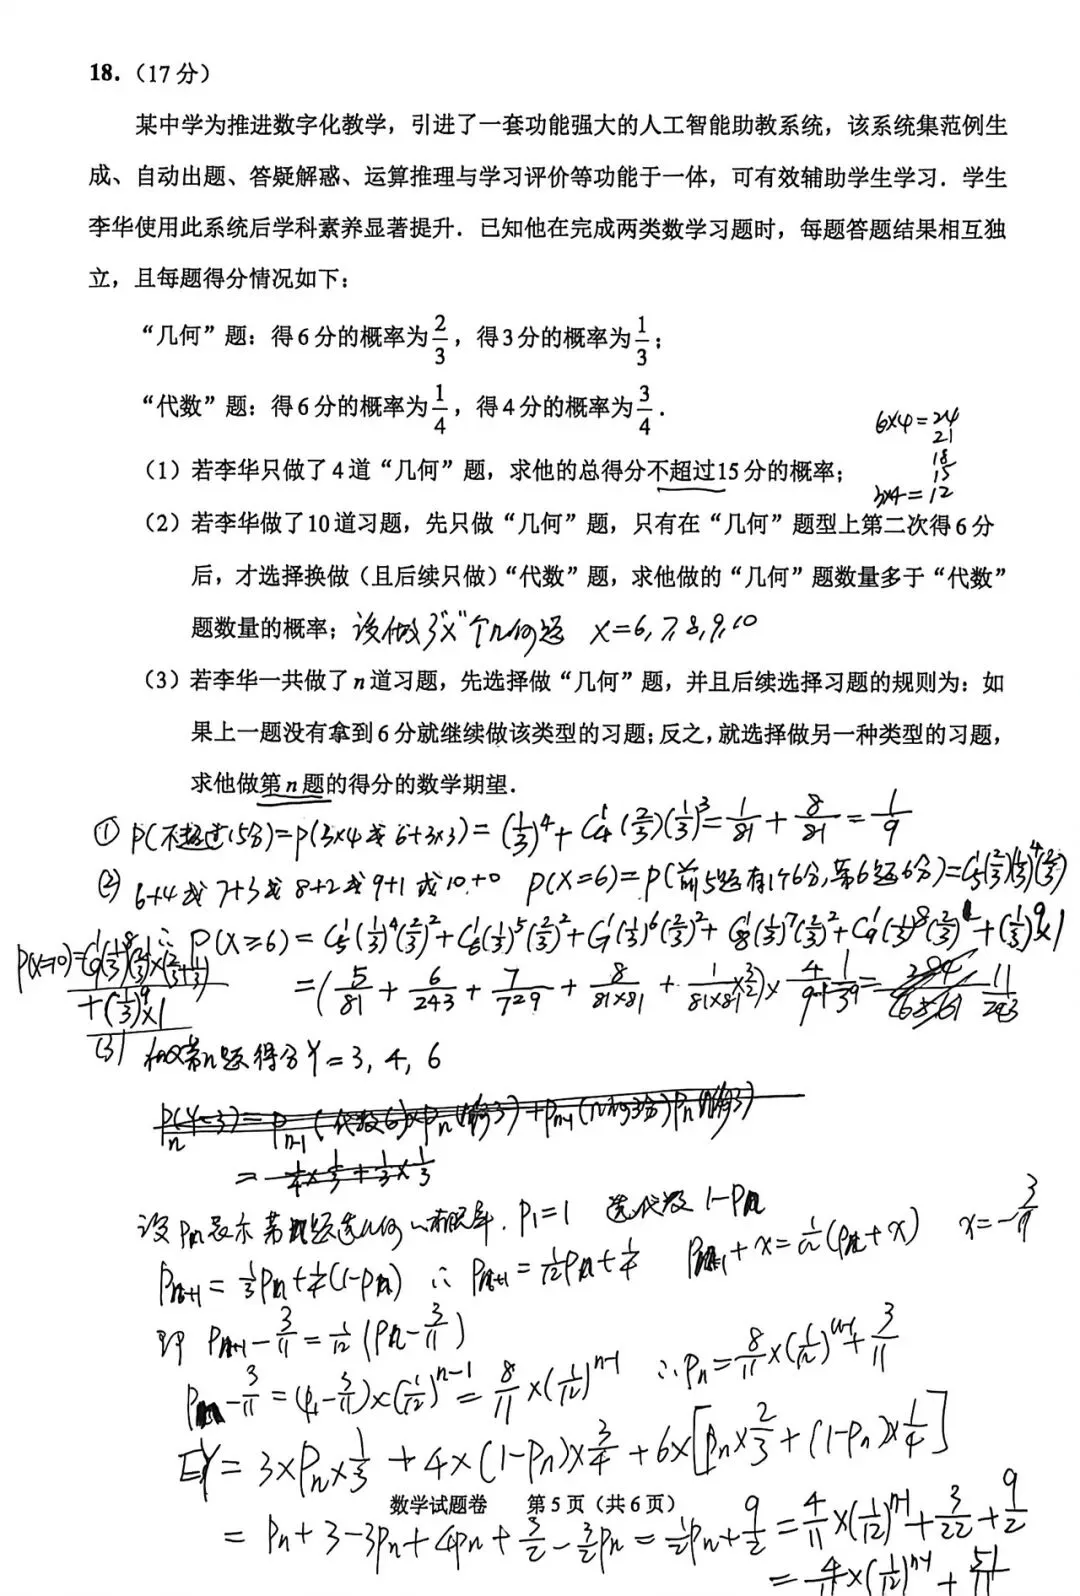 18.（17分）
某中学为推进数字化教学，引进了一套功能强大的人工智能助教系统，该系统集范例生
成、自动出题、答疑解惑、运算推理与学习评价等功能于一体，可有效辅助学生学习．学生
李华使用此系统后学科素养显著提升．已知他在完成两类数学习题时，每题答题结果相互独
立，且每题得分情况如下：
“几何”题：得6分的概率为2/3，得3分的概率为1/3；
“代数”题：得6分的概率为1/4，得4分的概率为3/4．
6×4=24
21
18
15
3×4=12
（1）若李华只做了4道“几何”题，求他的总得分不超过15分的概率；
（2）若李华做了10道习题，先只做“几何”题，只有在“几何”题型上第二次得6分
后，才选择换做（且后续只做）“代数”题，求他做的“几何”题数量多于“代数”
题数量的概率；设做了"x"个几何题 X=6,7,8,9,10
（3）若李华一共做了n道习题，先选择做“几何”题，并且后续选择习题的规则为：如
果上一题没有拿到6分就继续做该类型的习题；反之，就选择做另一种类型的习题，
求他做第n题的得分的数学期望．
① P(不超过15分)=P(3×4或6+3×3)=(1/3)^4+C_4^1(2/3)(1/3)^3=1/81+8/81=1/9
② 6+4或7+3或8+2或9+1或10+0 P(X=6)=P(前5题有1个6分,第6题6分)=C_5^1(2/3)(1/3)^4(2/3)
∴P(X≥6)=C_5^1(1/3)^4(2/3)^2+C_6^1(1/3)^5(2/3)^2+C_7^1(1/3)^6(2/3)^2+C_8^1(1/3)^7(2/3)^2+C_9^1(1/3)^8(2/3)+(1/3)^9×1
+(1/3)^9×1
(3) 第n题得分Y=3, 4, 6
设Pn表示第n题选几何的概率. P1=1 选代数1-Pn
Pn+1=1/3Pn+1/4(1-Pn) ∴Pn+1=1/12Pn+1/4 Pn+1+x=1/12(Pn+x) x=-3/11
即 Pn+1-3/11=1/12(Pn-3/11)
Pn-3/11=(P1-3/11)×(1/12)^n-1=8/11×(1/12)^n-1 ∴Pn=8/11×(1/12)^n-1+3/11
EY=3×Pn×1/3+4×(1-Pn)×3/4+6×[Pn×2/3+(1-Pn)×1/4]
数学试题卷 第5页（共6页）
=Pn+3-3Pn+4Pn+3/2-3/2Pn=1/2Pn+9/2=4/11×(1/12)^n-1+3/22+9/2
=4/11×(1/12)^n-1+51/11